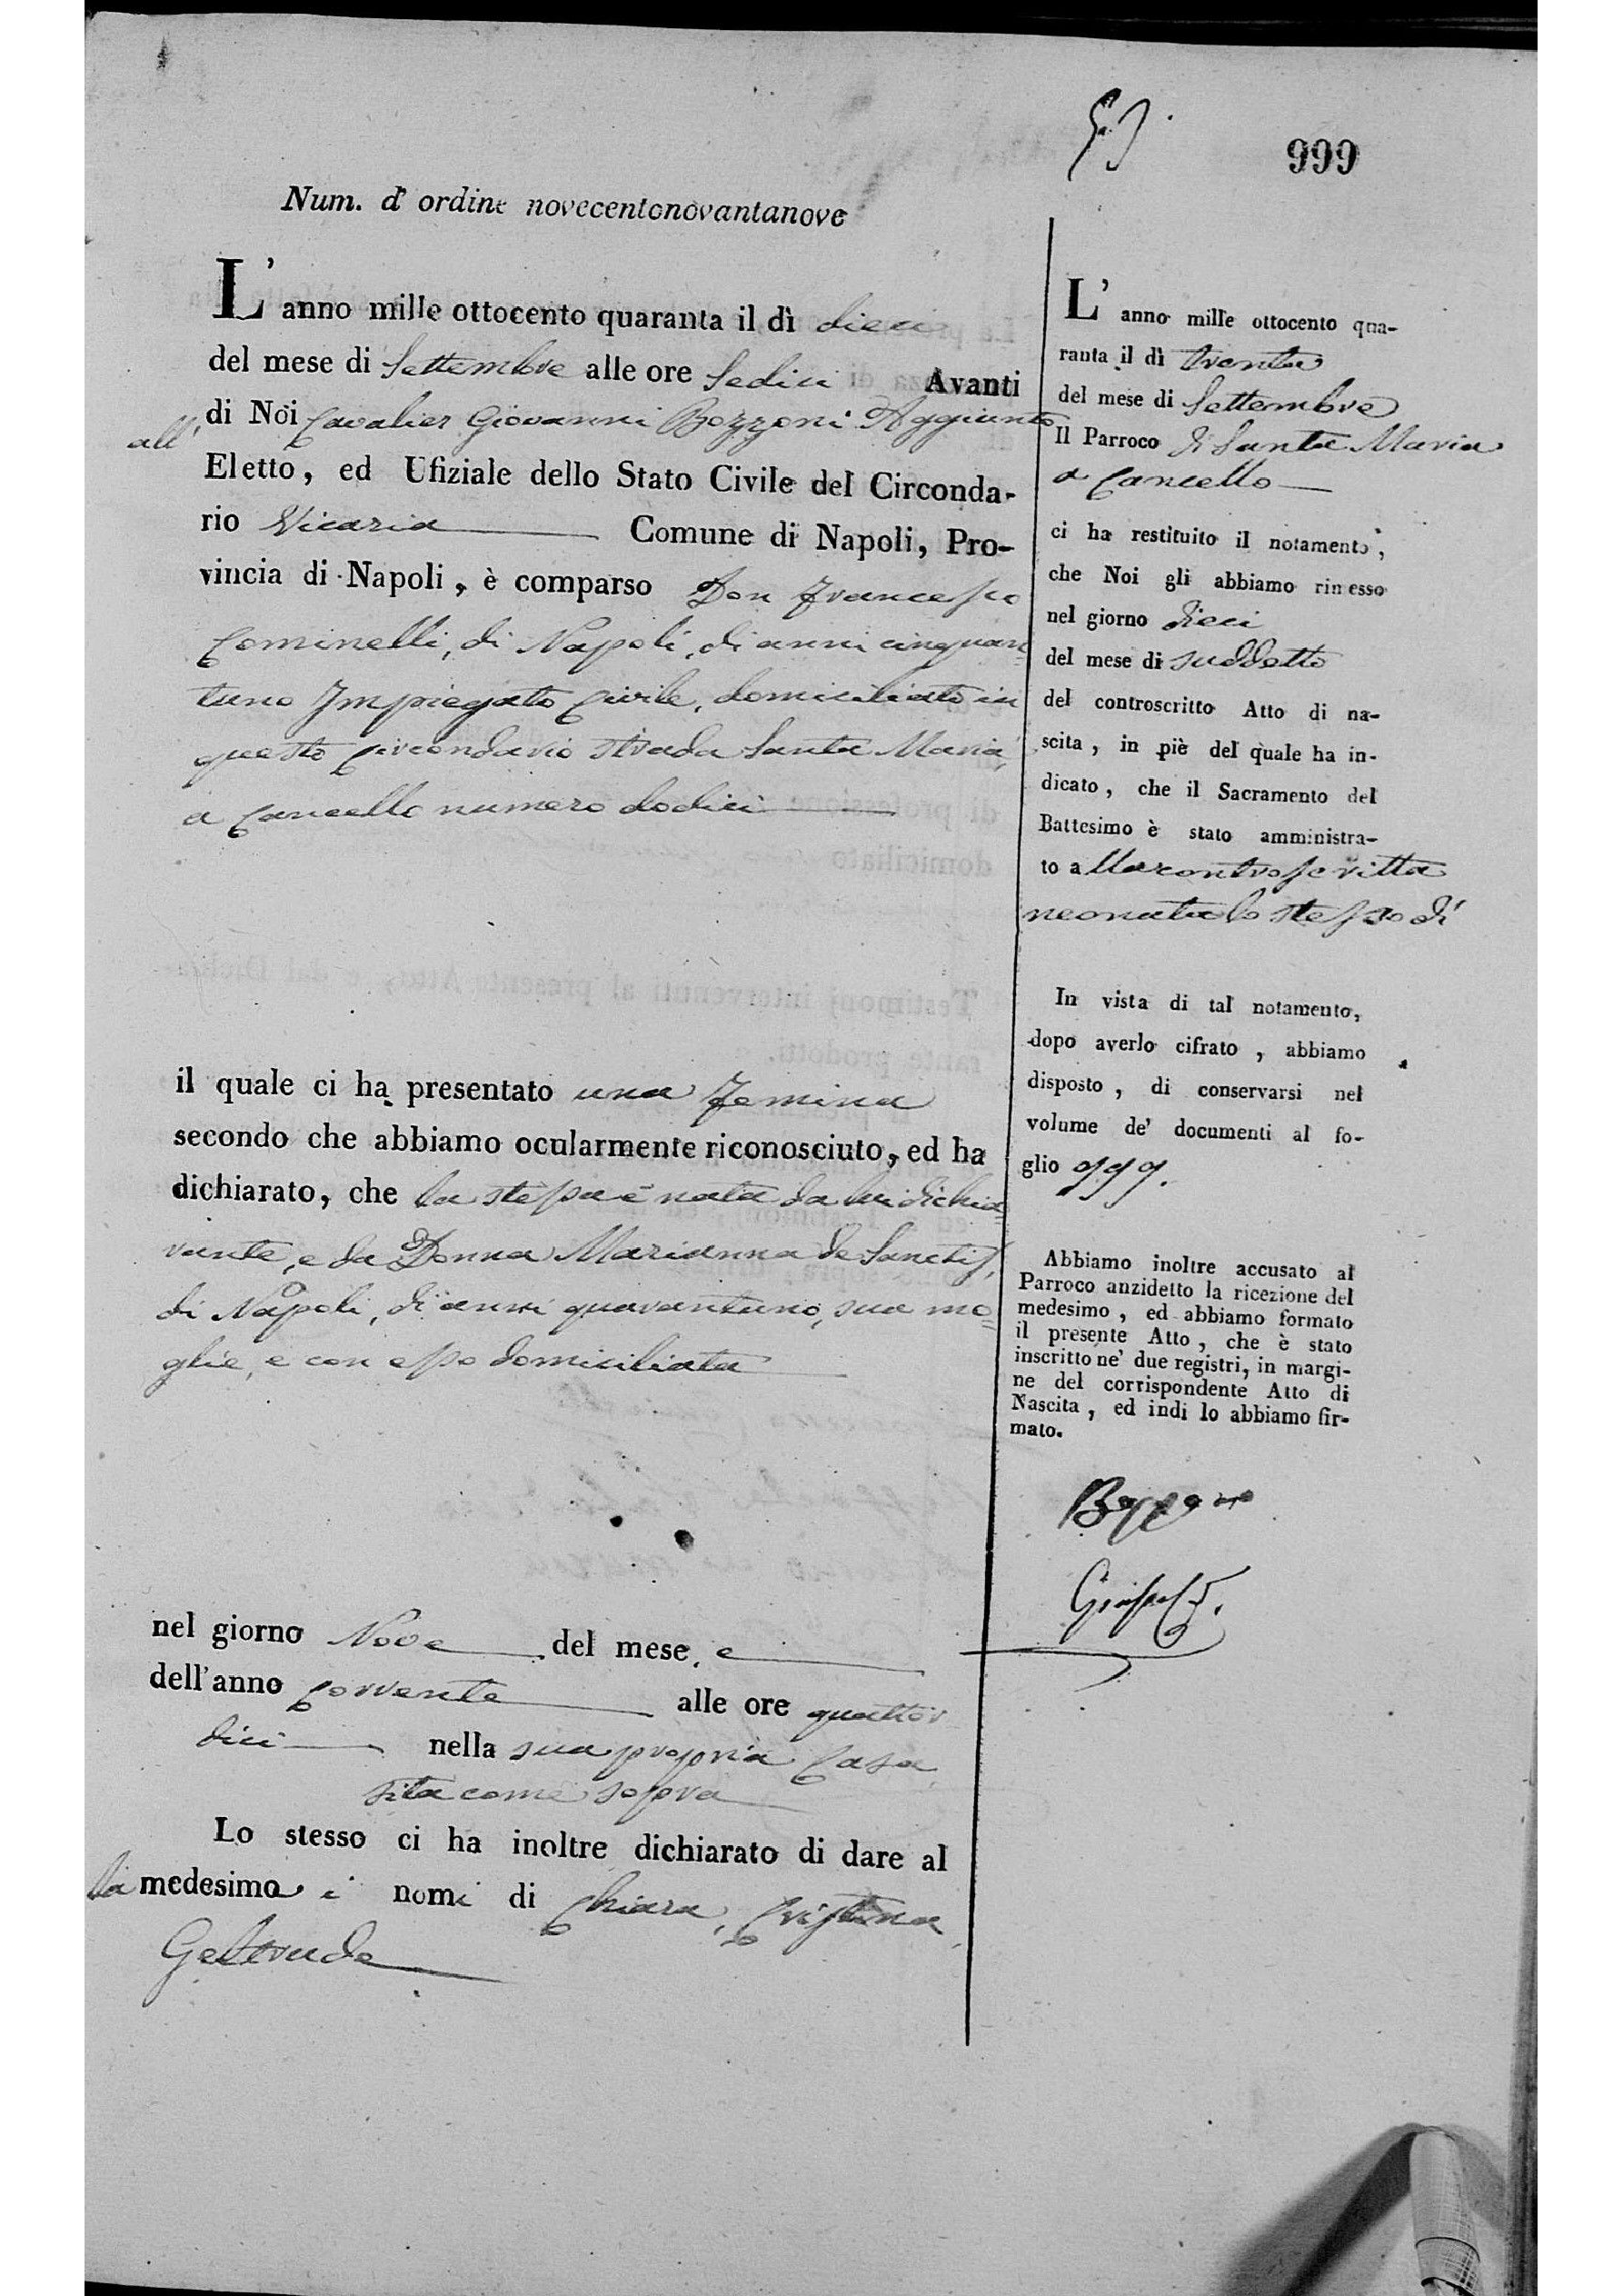 999
Num. d' ordine novecentonovantanove
L' anno mille ottocento quaranta il dì dieci
del mese di Settembre alle ore Sedici Avanti
di Noi Cavalier Giovanni Bozzoni Aggiunto
all'
Eletto, ed Ufiziale dello Stato Civile del Circonda-
rio Vicaria Comune di Napoli, Pro-
vincia di Napoli, è comparso Don Francesco
Cominelli, di Napoli, di anni cinquan=
tuno Impiegato Civile, domiciliato in
questo Circondario strada Santa Maria
a Cancello numero dodici
il quale ci ha presentato una Femina
secondo che abbiamo ocularmente riconosciuto, ed ha
dichiarato, che la stessa è nata da lui dichia=
rante, e da Donna Marianna de Sanctis,
di Napoli, di anni quarantuno, sua mo=
glie, e con esso domiciliata
nel giorno Nove del mese e
dell'anno Corrente alle ore quattor
dici nella sua propria Casa
sita come sopra
Lo stesso ci ha inoltre dichiarato di dare al
la medesima i nomi di Chiara, Cristina
Geltrude
L' anno mille ottocento qua-
ranta il dì trenta
del mese di Settembre
Il Parroco di Santa Maria
a Cancello
ci ha restituito il notamento,
che Noi gli abbiamo rimesso
nel giorno dieci
del mese di suddetto
del controscritto Atto di na-
scita, in piè del quale ha in-
dicato, che il Sacramento del
Battesimo è stato amministra-
to a lla controscritta
neonata lo stesso dì
In vista di tal notamento,
dopo averlo cifrato, abbiamo
disposto, di conservarsi nel
volume de' documenti al fo-
glio 999.
Abbiamo inoltre accusato al
Parroco anzidetto la ricezione del
medesimo, ed abbiamo formato
il presente Atto, che è stato
inscritto ne' due registri, in margi-
ne del corrispondente Atto di
Nascita, ed indi lo abbiamo fir-
mato.
Bozzoni